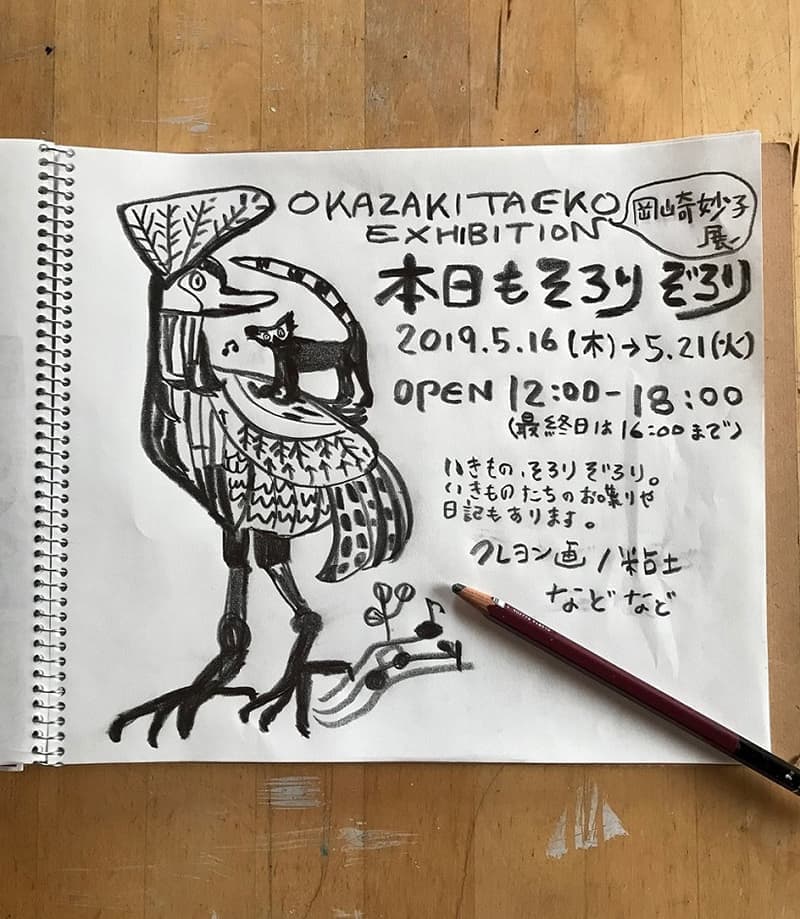 OKAZAKI TAEKO
EXHIBITION
岡崎妙子
展
本日もそろりぞろり
2019.5.16(木)→5.21(火)
OPEN 12:00-18:00
(最終日は16:00まで)
いきもの、そろりぞろり。
いきものたちのお喋りや
日記もあります。
クレヨン画/粘土
などなど